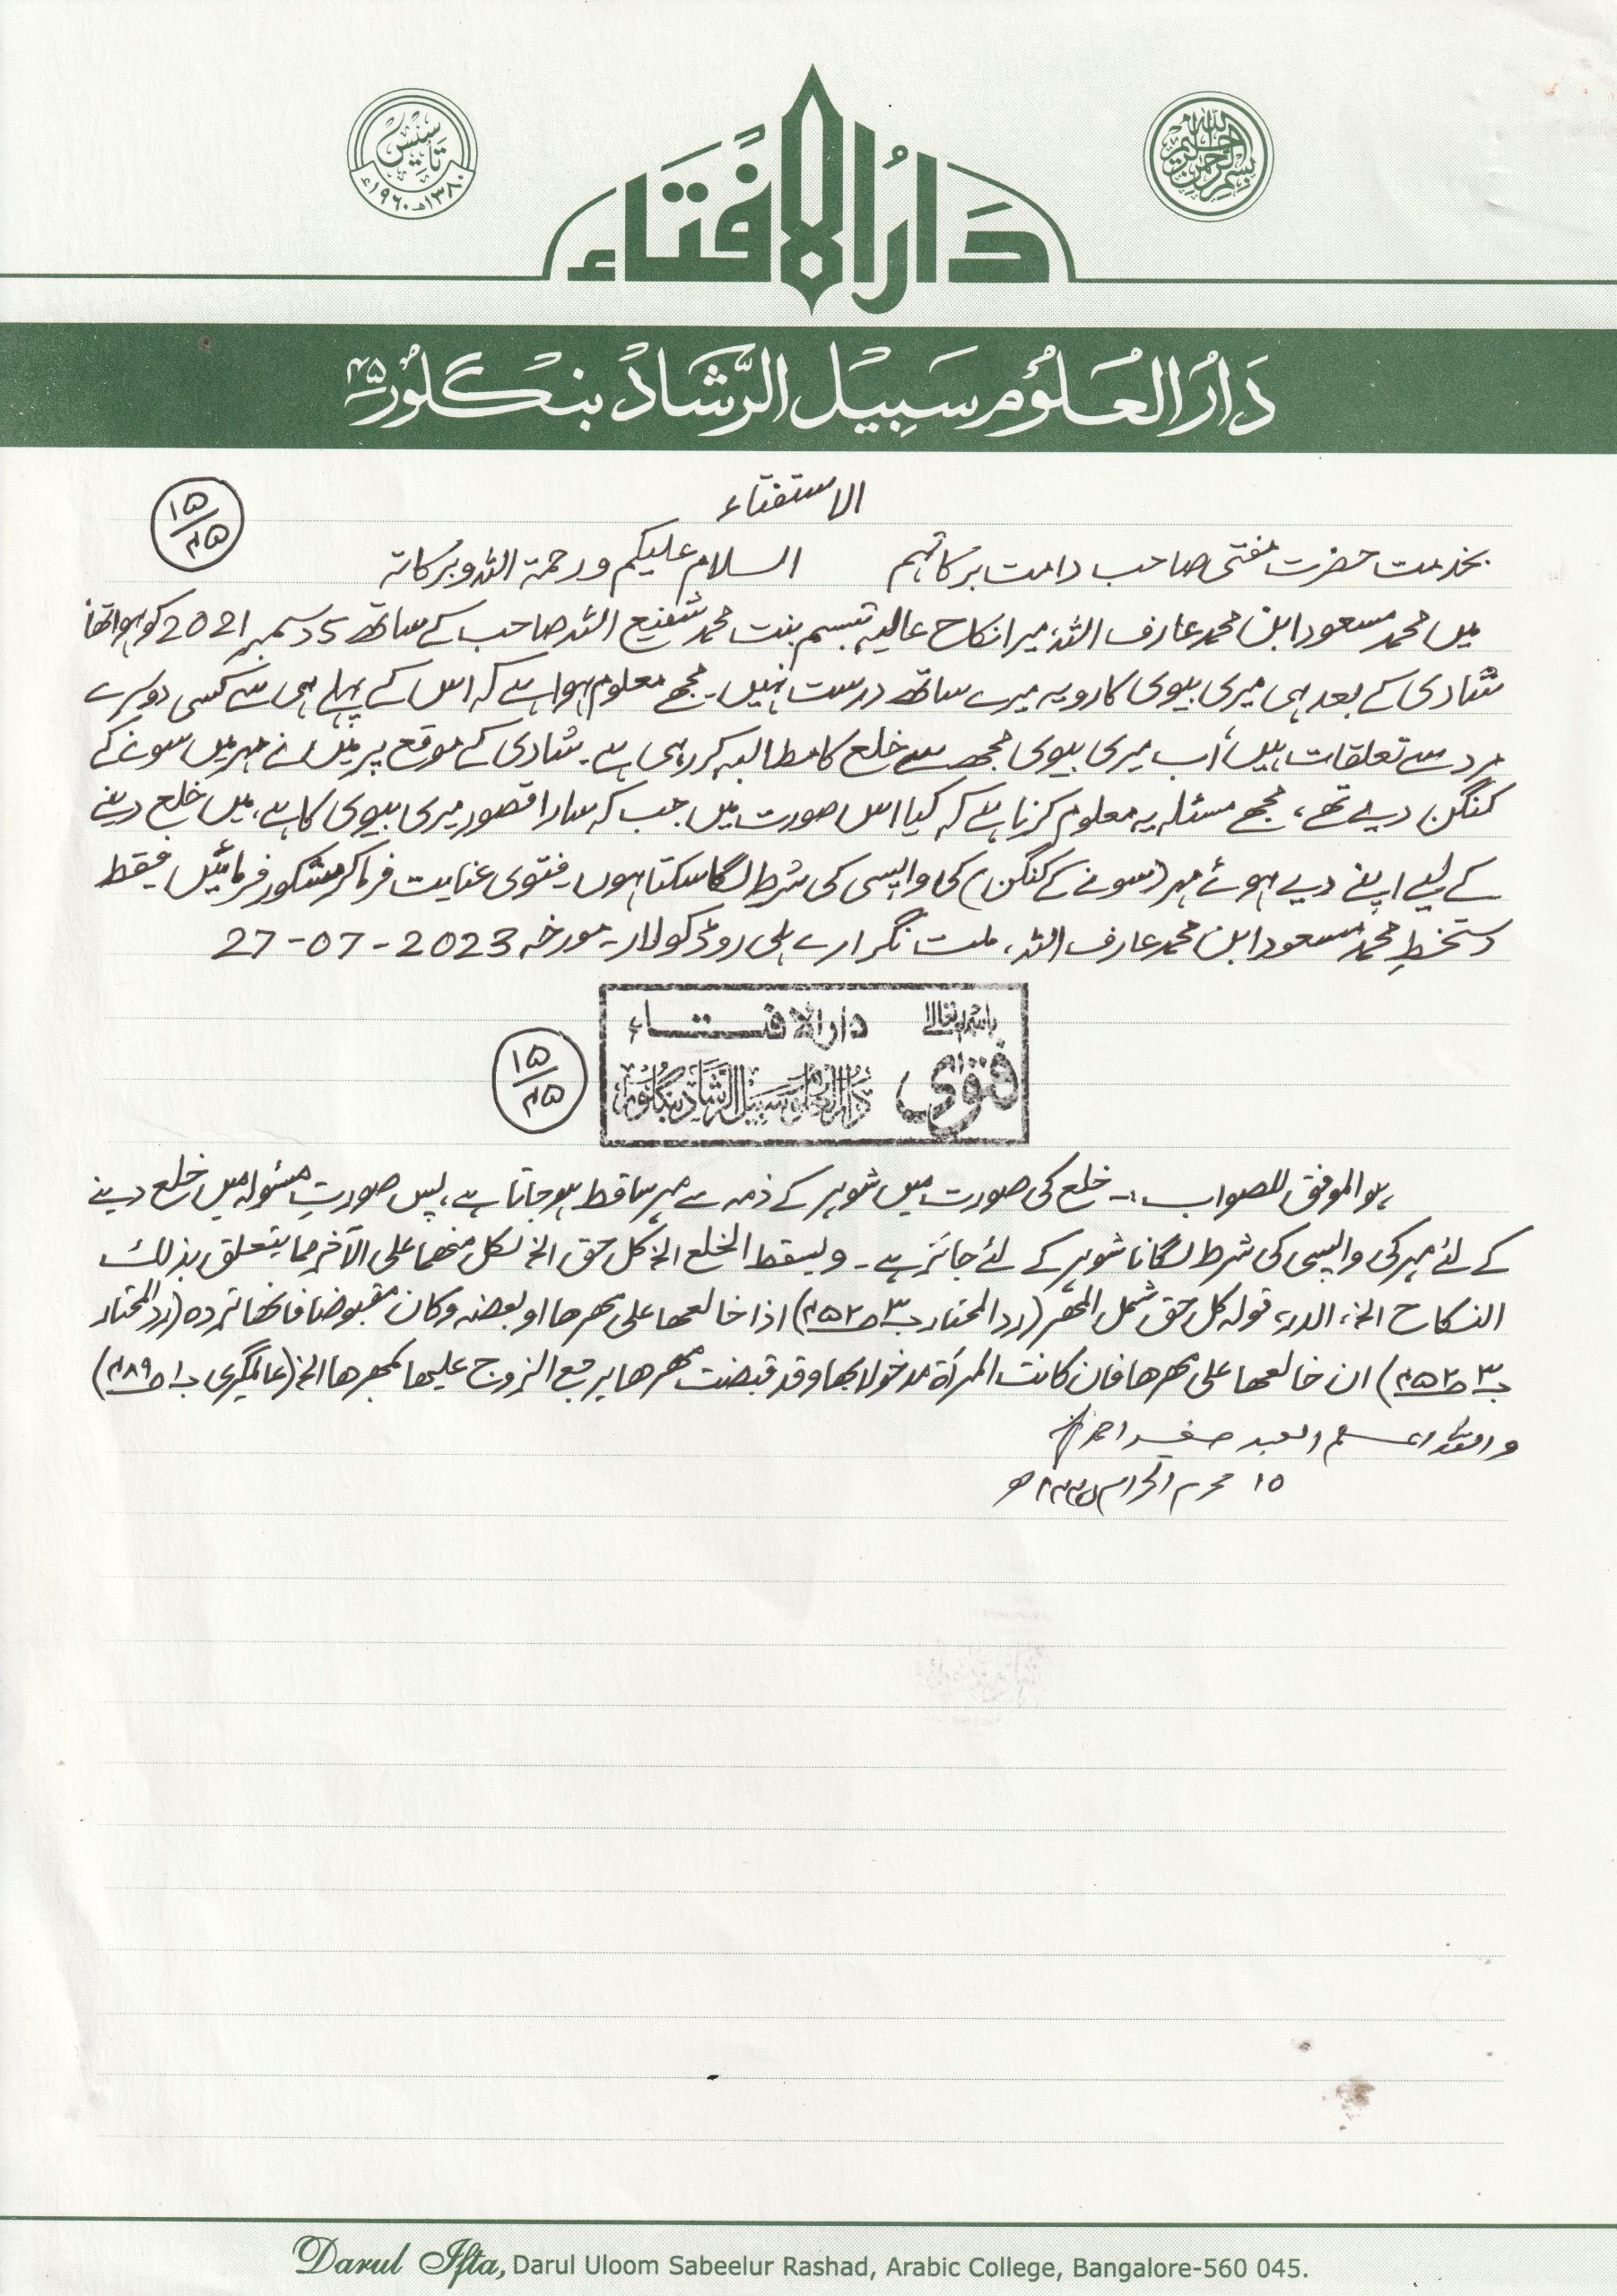 تأسيس
١٣٨٠هـ ١٩٦٠ء
بسم الله الرحمن الرحيم
دَارُ الإفتَاء
دَارُ العُلُوم سَبِيْل الرَّشَاد بنگلور ۴۵
۱۵/۴۵
الاستفتاء
بخدمت حضرت مفتی صاحب دامت برکاتہم السلام علیکم ورحمۃ اللہ وبرکاتہ
میں محمد مسعود ابن محمد عارف اللہ، میرا نکاح عالیہ تبسم بنت محمد شفیع اللہ صاحب کے ساتھ 5 دسمبر 2021 کو ہوا تھا
شادی کے بعد ہی میری بیوی کا رویہ میرے ساتھ درست نہیں۔ مجھے معلوم ہوا ہے کہ اس کے پہلے ہی سے کسی دوسرے
مرد سے تعلقات ہیں، اب میری بیوی مجھ سے خلع کا مطالبہ کر رہی ہے۔ شادی کے موقع پر میں نے مہر میں سونے کے
کنگن دیے تھے، مجھے مسئلہ یہ معلوم کرنا ہے کہ کیا اس صورت میں جب کہ سارا قصور میری بیوی کا ہے، میں خلع دینے
کے لیے اپنے دیے ہوئے مہر (سونے کے کنگن) کی واپسی کی شرط لگا سکتا ہوں۔ فتوی عنایت فرما کر مشکور فرمائیں۔ فقط
دستخطِ محمد مسعود ابن محمد عارف اللہ، ملت نگر ارے ہلی روڈ کولار۔ مورخہ 2023 - 07 - 27
باسمہ تعالیٰ دار الافتاء
فتوی دار العلوم سبیل الرشاد بنگلور
۱۵/۴۵
ہو الموفق للصواب :۔ خلع کی صورت میں شوہر کے ذمہ سے مہر ساقط ہوجاتا ہے، پس صورتِ مسئولہ میں خلع دینے
کے لئے مہر کی واپسی کی شرط لگانا شوہر کے لئے جائز ہے۔ ویسقط الخلع الخ کل حق الخ لکل منھما علی الآخر مما یتعلق بذلک
النکاح الخ، الدر، قولہ کل حق شمل المھر (رد المحتار ج۳ ص۴۵۲) اذا خالعھا علی مھرھا او بعضہ وکان مقبوضا فانھا تردہ (رد المحتار
ج۳ ص۴۵۲) ان خالعھا علی مھرھا فان کانت المرأۃ مدخولا بھا وقد قبضت مھرھا یرجع الزوج علیھا بمھرھا الخ (عالمگیری ج۱ ص۴۸۹)
واللہ اعلم العبد صغیر احمد
۱۵ محرم الحرام ۱۴۴۵ھ
Darul Ifta, Darul Uloom Sabeelur Rashad, Arabic College, Bangalore-560 045.